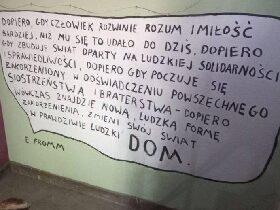 DOPIERO GDY CZŁOWIEK ROZWINIE ROZUM I MIŁOŚĆ
BARDZIEJ, NIŻ MU SIĘ TO UDAŁO DO DZIŚ, DOPIERO
GDY ZBUDUJE ŚWIAT OPARTY NA LUDZKIEJ SOLIDARNOŚCI
I SPRAWIEDLIWOŚCI, DOPIERO GDY POCZUJE SIĘ
ZAKORZENIONY W DOŚWIADCZENIU POWSZECHNEGO
SIOSTRZEŃSTWA I BRATERSTWA - DOPIERO
WÓWCZAS ZNAJDZIE NOWĄ, LUDZKĄ FORMĘ
ZAKORZENIENIA, ZMIENI SWÓJ ŚWIAT
W PRAWDZIWIE LUDZKI DOM.
E. FROMM